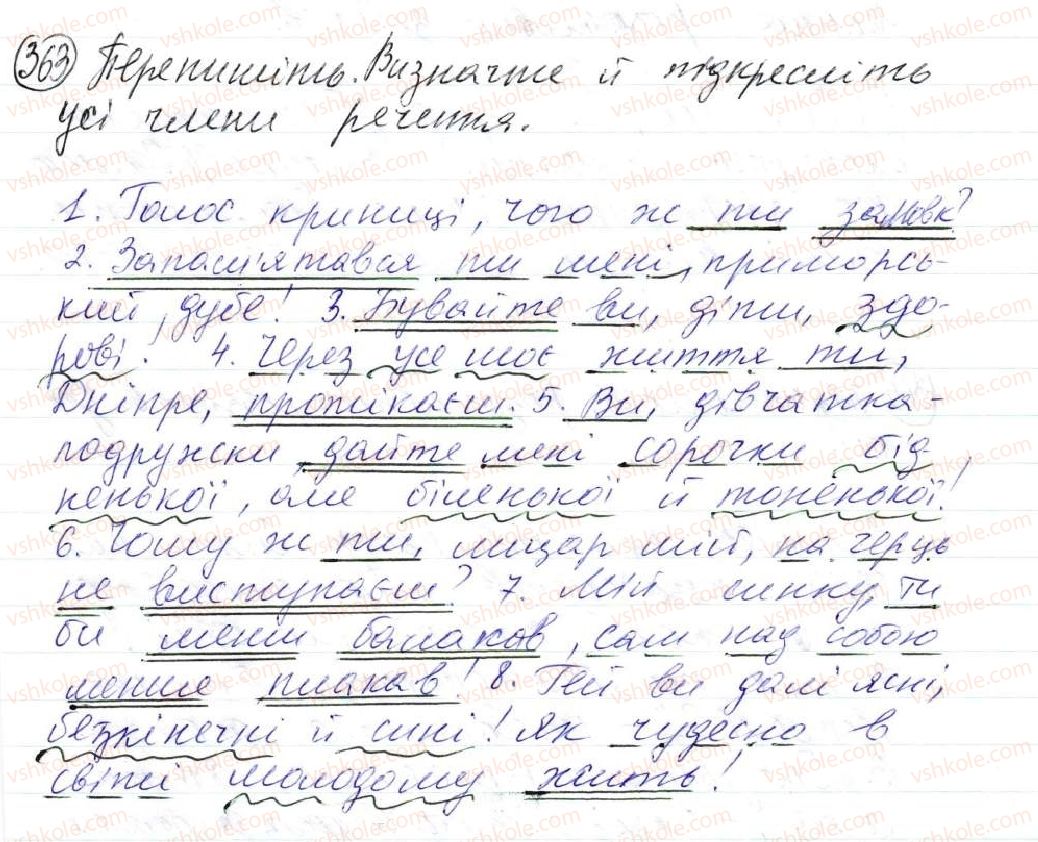 363 Перепишіть. Визначте й підкресліть
усі члени речення.
1. Голос криниці, чого ж ти замовк?
2. Запам'ятався ти мені, приморсь-
кий дубе! 3. Бувайте ви, діти, здо-
рові! 4. Через усе моє життя ти,
Дніпре, протікаєш. 5. Ви, дівчатка-
подружки, дайте мені сорочки бід
ненької, але біленької й тоненької!
6. Чому ж ти, лицар мій, на герць
не виступаєш? 7. Мій синку, ти
би менш балакав, сам над собою
менше плакав! 8. Гей ви далі ясні,
безкінечні й сині! Як чудесно в
світі молодому жить!